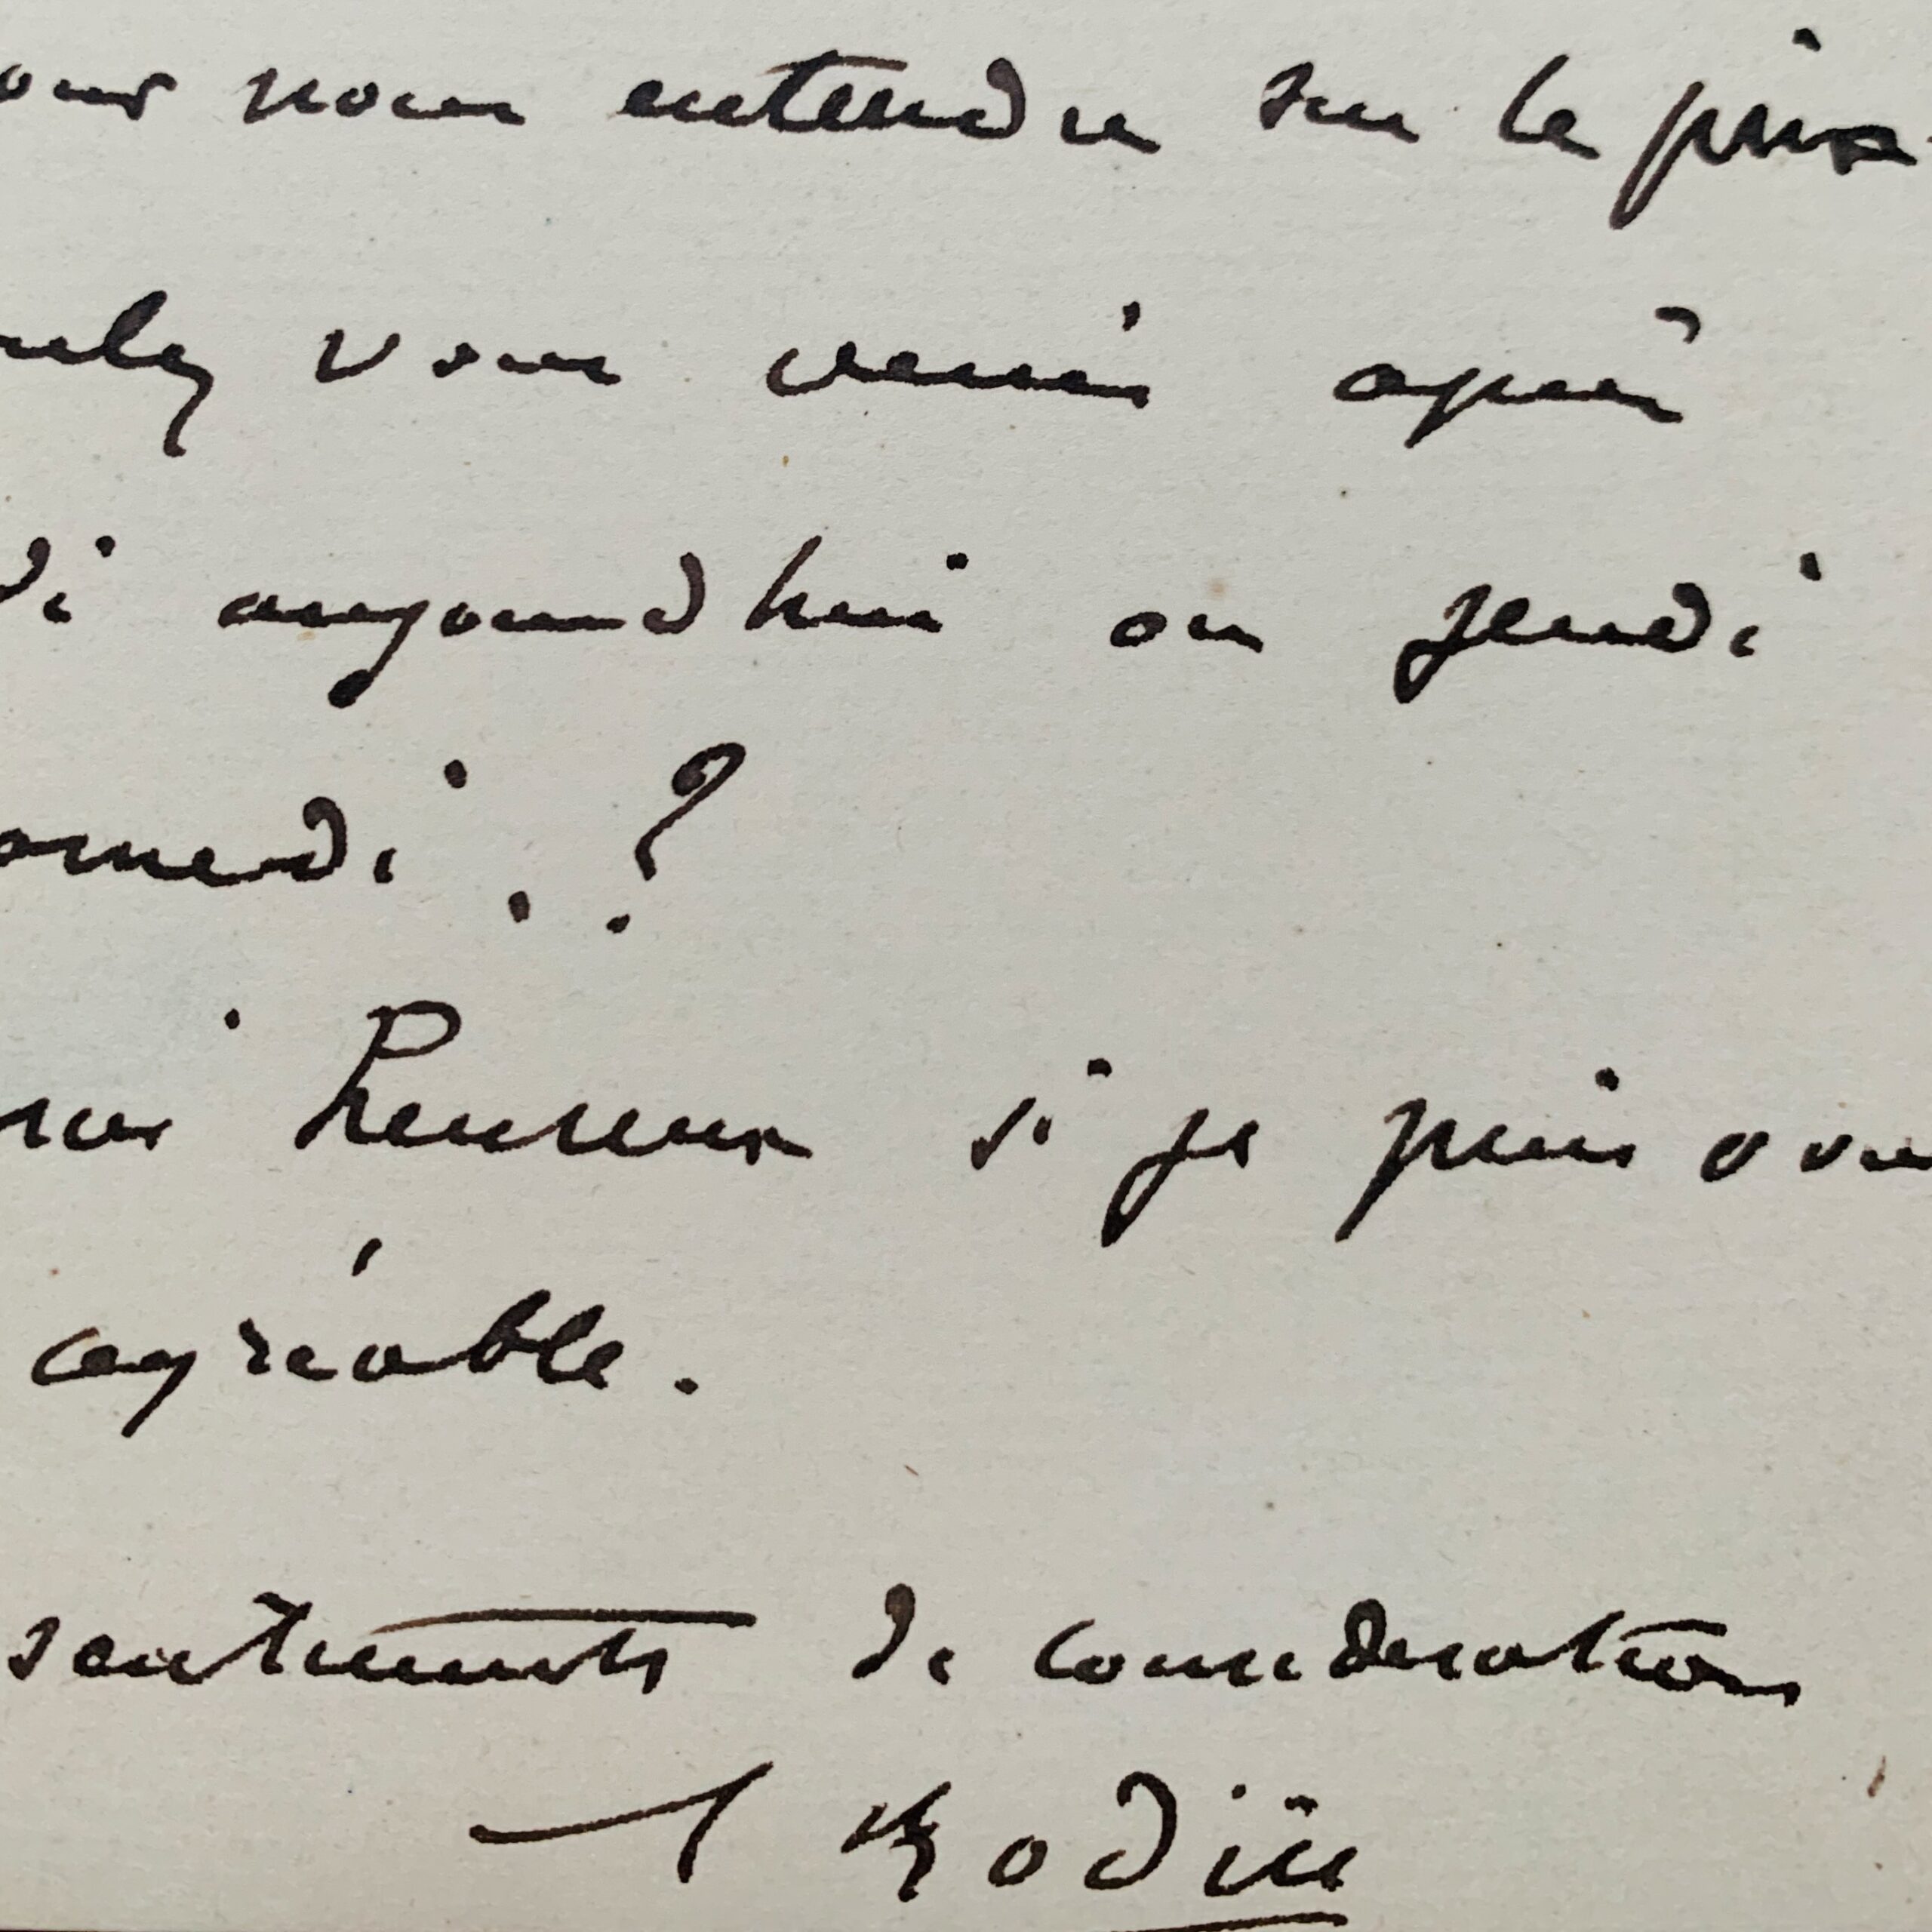 our nous entendre sur le prix
ulez vous venir après
di aujourdhui ou jeudi
amedi . ?
rai heureux si je puis vous
agréable.
sentiments de consideration
A Rodin